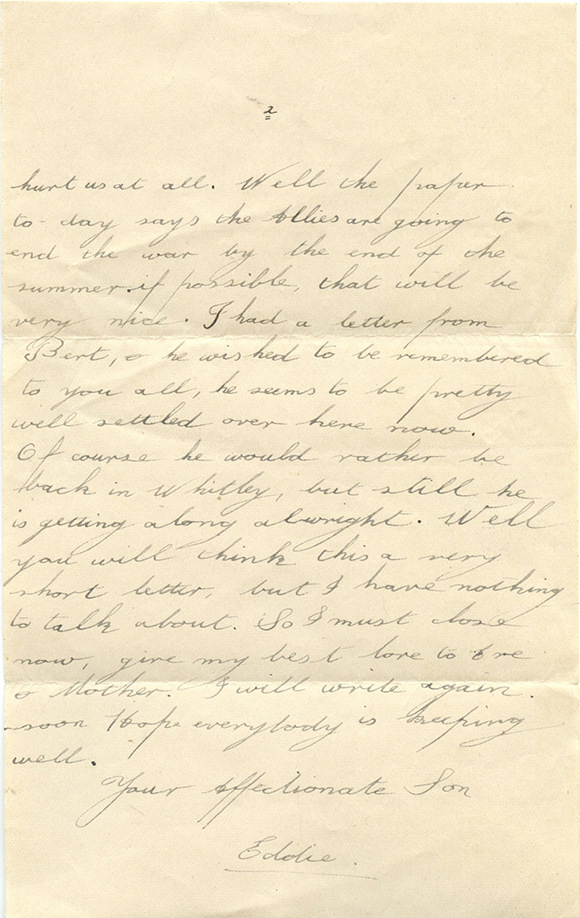 2
hurt us at all. Well the paper
to-day says the Allies are going to
end the war by the end of the
summer if possible, that will be
very nice. I had a letter from
Bert, & he wished to be remembered
to you all, he seems to be pretty
well settled over here now.
Of course he would rather be
back in Whitley, but still he
is getting along alwright. Well
you will think this a very
short letter, but I have nothing
to talk about. So I must close
now, give my best love to
& Mother. I will write again.
soon Hope everybody is keeping
well.
Your Affectionate Son
Eddie.